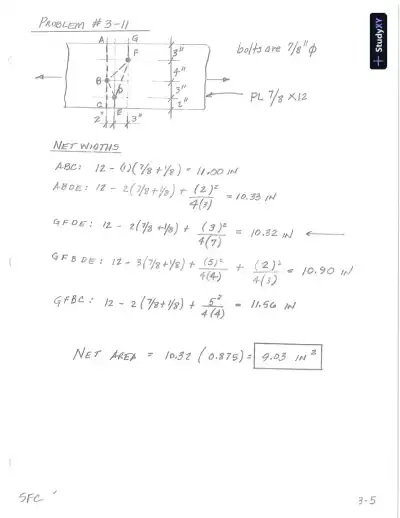 PROBLEM # 3-11
StudyXY
A
G
F
B
D
C
E
3"
4"
3"
2"
2"
3"
bolts are 7/8" ϕ
PL 7/8 X12
NET WIDTHS
ABC: 12 - (1)(7/8 + 1/8) = 11.00 IN
ABDE: 12 - 2(7/8+1/8) + (2)²/4(3) = 10.33 IN
GFDE: 12 - 2(7/8+1/8) + (3)²/4(7) = 10.32 IN ←
GFBDE: 12 - 3(7/8+1/8) + (5)²/4(4) + (2)²/4(3) = 10.90 IN
GFBC: 12 - 2(7/8+1/8) + 5²/4(4) = 11.56 IN
NET AREA = 10.32 (0.875) = 9.03 IN²
SFC
3-5